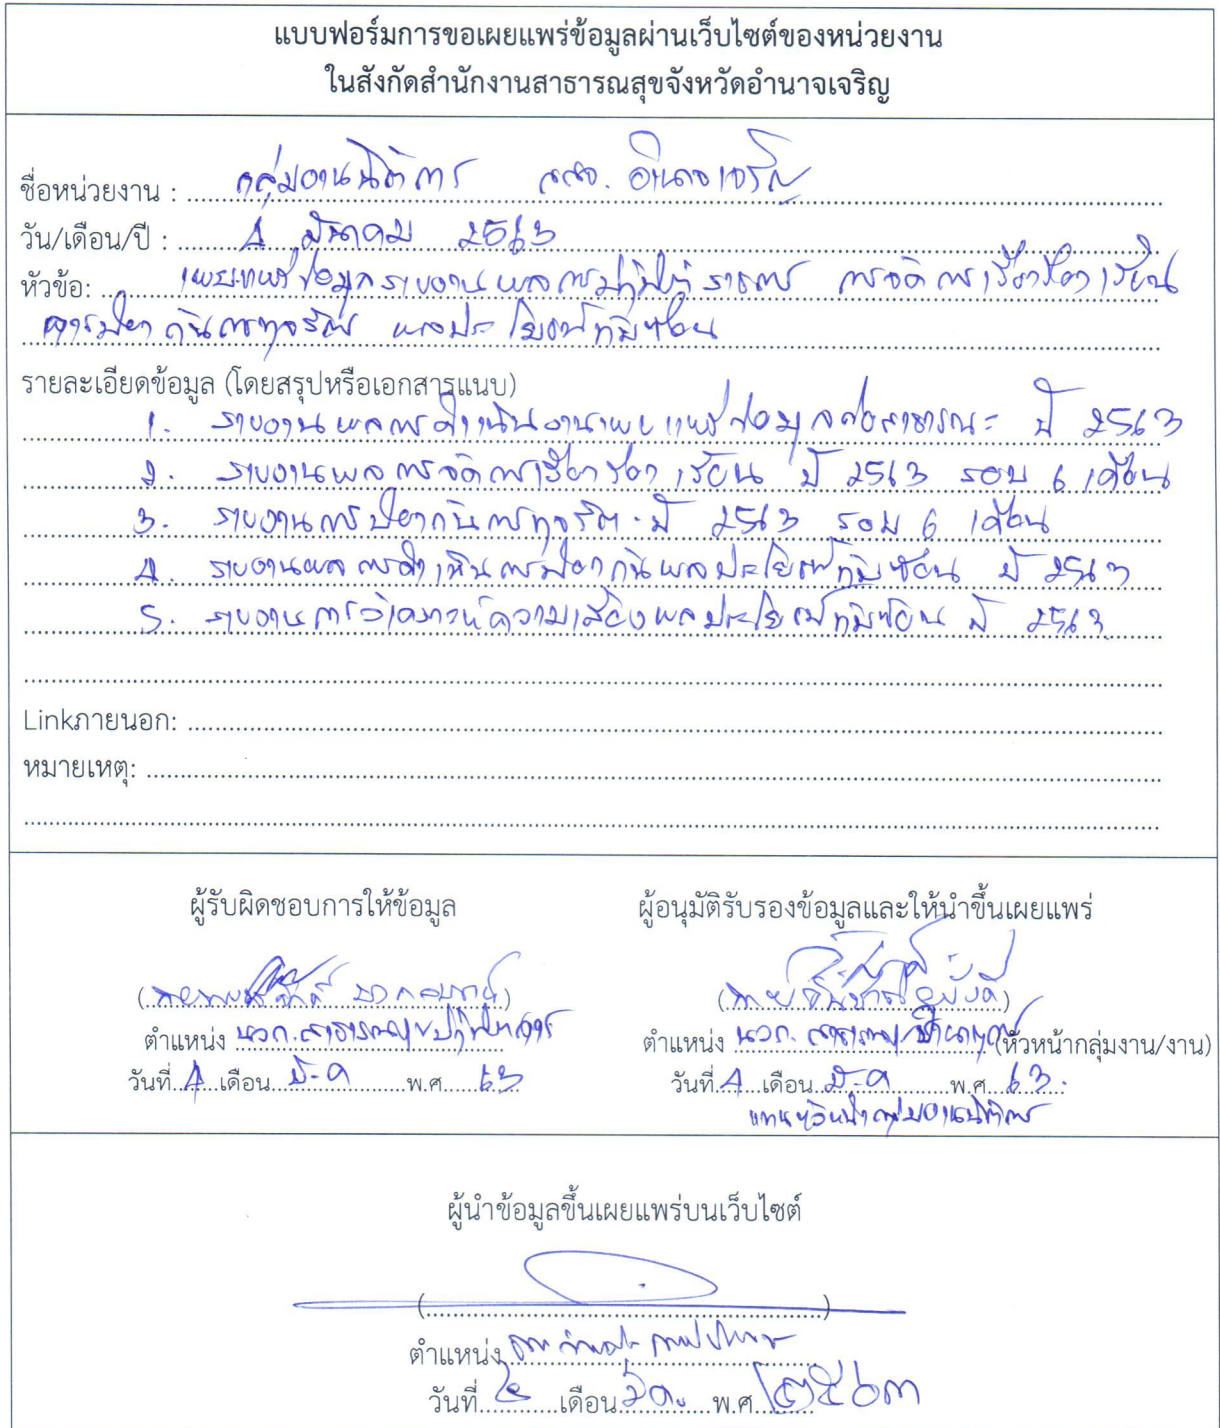 แบบฟอร์มการขอเผยแพร่ข้อมูลผ่านเว็บไซต์ของหน่วยงาน
ในสังกัดสำนักงานสาธารณสุขจังหวัดอำนาจเจริญ
ชื่อหน่วยงาน : กลุ่มงานนิติการ สสจ. อำนาจเจริญ
วัน/เดือน/ปี : 4 มีนาคม 2563
หัวข้อ: เผยแพร่ข้อมูลรายงานผลการปฏิบัติราชการ การจัดการเรื่องร้องเรียน
การป้องกันการทุจริต ผลประโยชน์ทับซ้อน
รายละเอียดข้อมูล (โดยสรุปหรือเอกสารแนบ)
1. รายงานผลการดำเนินงานเผยแพร่ข้อมูลต่อสาธารณะ ปี 2563
2. รายงานผลการจัดการเรื่องร้องเรียน ปี 2563 รอบ 6 เดือน
3. รายงานการป้องกันการทุจริต ปี 2563 รอบ 6 เดือน
4. รายงานผลการดำเนินการป้องกันผลประโยชน์ทับซ้อน ปี 2563
5. รายงานการวิเคราะห์ความเสี่ยงผลประโยชน์ทับซ้อน ปี 2563
Linkภายนอก:
หมายเหตุ:
ผู้รับผิดชอบการให้ข้อมูล ผู้อนุมัติรับรองข้อมูลและให้นำขึ้นเผยแพร่
ตำแหน่ง นวก.สาธารณสุขปฏิบัติการ ตำแหน่ง นวก. สาธารณสุขชำนาญการ (หัวหน้ากลุ่มงาน/งาน)
วันที่ 4 เดือน มี.ค พ.ศ. 63 วันที่ 4 เดือน มี.ค พ.ศ. 63.
แทนหัวหน้ากลุ่มงานนิติการ
ผู้นำข้อมูลขึ้นเผยแพร่บนเว็บไซต์
ตำแหน่ง
วันที่ ๔ เดือน มีค. พ.ศ. ๒๕๖๓